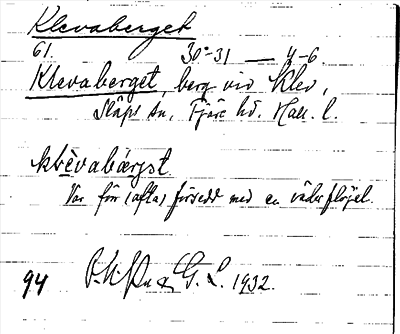 Klevaberget
61. 30°-31 — 4-6.
Klevaberget, berg vid Klev,
Släps sn, Fjäre hd. Hall. l.
klèvabærjət
Var för (ofta) försedd med en väderflöjel.
94 G. L. 1932.